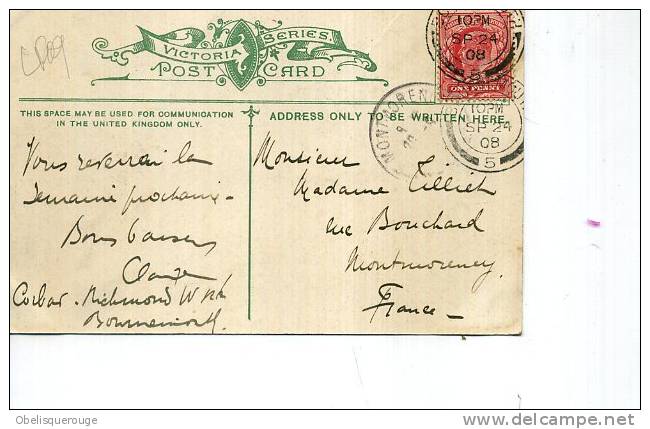 CP09
VICTORIA SERIES.
POST CARD
THIS SPACE MAY BE USED FOR COMMUNICATION
IN THE UNITED KINGDOM ONLY.
ADDRESS ONLY TO BE WRITTEN HERE.
10PM
SP 24
08
5
ONE PENNY
10PM
SP 24
08
5
MONTMOREN
Vous reverrai la
Semaine prochaine -
Bons baisers
Richmond
Bournemouth
Monsieur
Madame Tilliet
rue Bouchard
Montmorency
France -
Obelisquerouge
www.delcampe.net